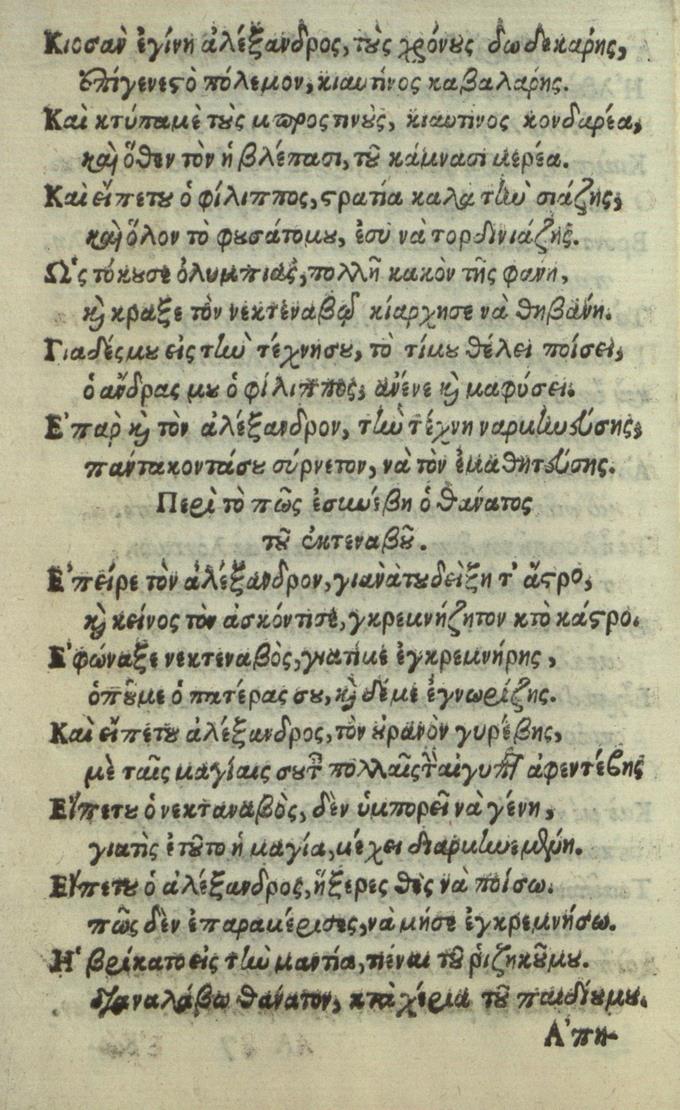 Κιοσὰν ἐγίνη ἀλέξανδρος, τοὺς χρόνους δωδεκάρης,
ἐπίγενε στὸ πόλεμον, κιαυτίνος καβαλάρης.
Καὶ κτύπαμὲ τοὺς μπροστινοὺς, κιαυτίνος κονδαρέα,
καὶ ὅθεν τὸν ἡ βλέπασι, τοῦ κάμνασι μερέα.
Καὶ εἶπετου ὁ φίλιππος, στρατία καλὰ τὴν σιάζης,
καὶ ὅλον τὸ φουσάτομου, ἐσὺ νὰ τορδινιάζης.
Ὡς τόκουσε ὀλυμπιάς, πολλῆ κακὸν τῆς φανή,
καὶ κραξε τὸν νεκτεναβῶ κίαρχησε νὰ θηβάνη.
Γιαδές μου εἰς τὴν τέχνησου, τὸ τίμου θέλει ποίσει,
ὁ ἄνδρας μου ὁ φίλιππος, ἀνένε καὶ μαφύσει.
Ἐπαρ καὶ τὸν ἀλέξανδρον, τὴν τέχνη ναρμηνεύσης,
πάντακοντάσου σύρνετον, νὰ τὸν ἐμαθητεύσης.
Περὶ τὸ πῶς ἐσυνέβη ὁ θάνατος
τοῦ ἐκτεναβοῦ.
Ἐπεῖρε τὸν ἀλέξανδρον, γιανὰτουδείξη τ' ἄστρο,
καὶ κείνος τὸν ἀσκόντισε, γκρεμνήζητον κτὸ κάστρο.
Ἐφώναξε νεκτεναβὸς, γιατίμὲ ἐγκρεμνήρης,
ὁποῦμε ὁ πατέρας σου, καὶ δέμὲ ἐγνωρίζης.
Καὶ εἶπετου ἀλέξανδρος, τὸν οὐρανὸν γυρέβης,
μὲ ταῖς μαγίαις σου πολλαῖς αἰγυπ ἀφεντέβης
Εἶπετου ὁ νεκταναβὸς, δὲν ὑμπορεῖ νὰ γένη,
γιατὶς ἐτοῦτο ἡ μαγία, μέχει διαρμηνεμένη.
Εἶπετου ὁ ἀλέξανδρος, ἤξερες θὲς νὰ ποίσω.
πῶς δὲν ἐπαραμέρισες, νὰ μήσε ἐγκρεμνήσω.
Ἡ βρίκατο εἰς τὴν μαντία, πέναι τοῦ ῥιζηκοῦμου.
ναλάβω θάνατον, κτὰ χέρια τοῦ παιδίουμου.
Ἀπη-